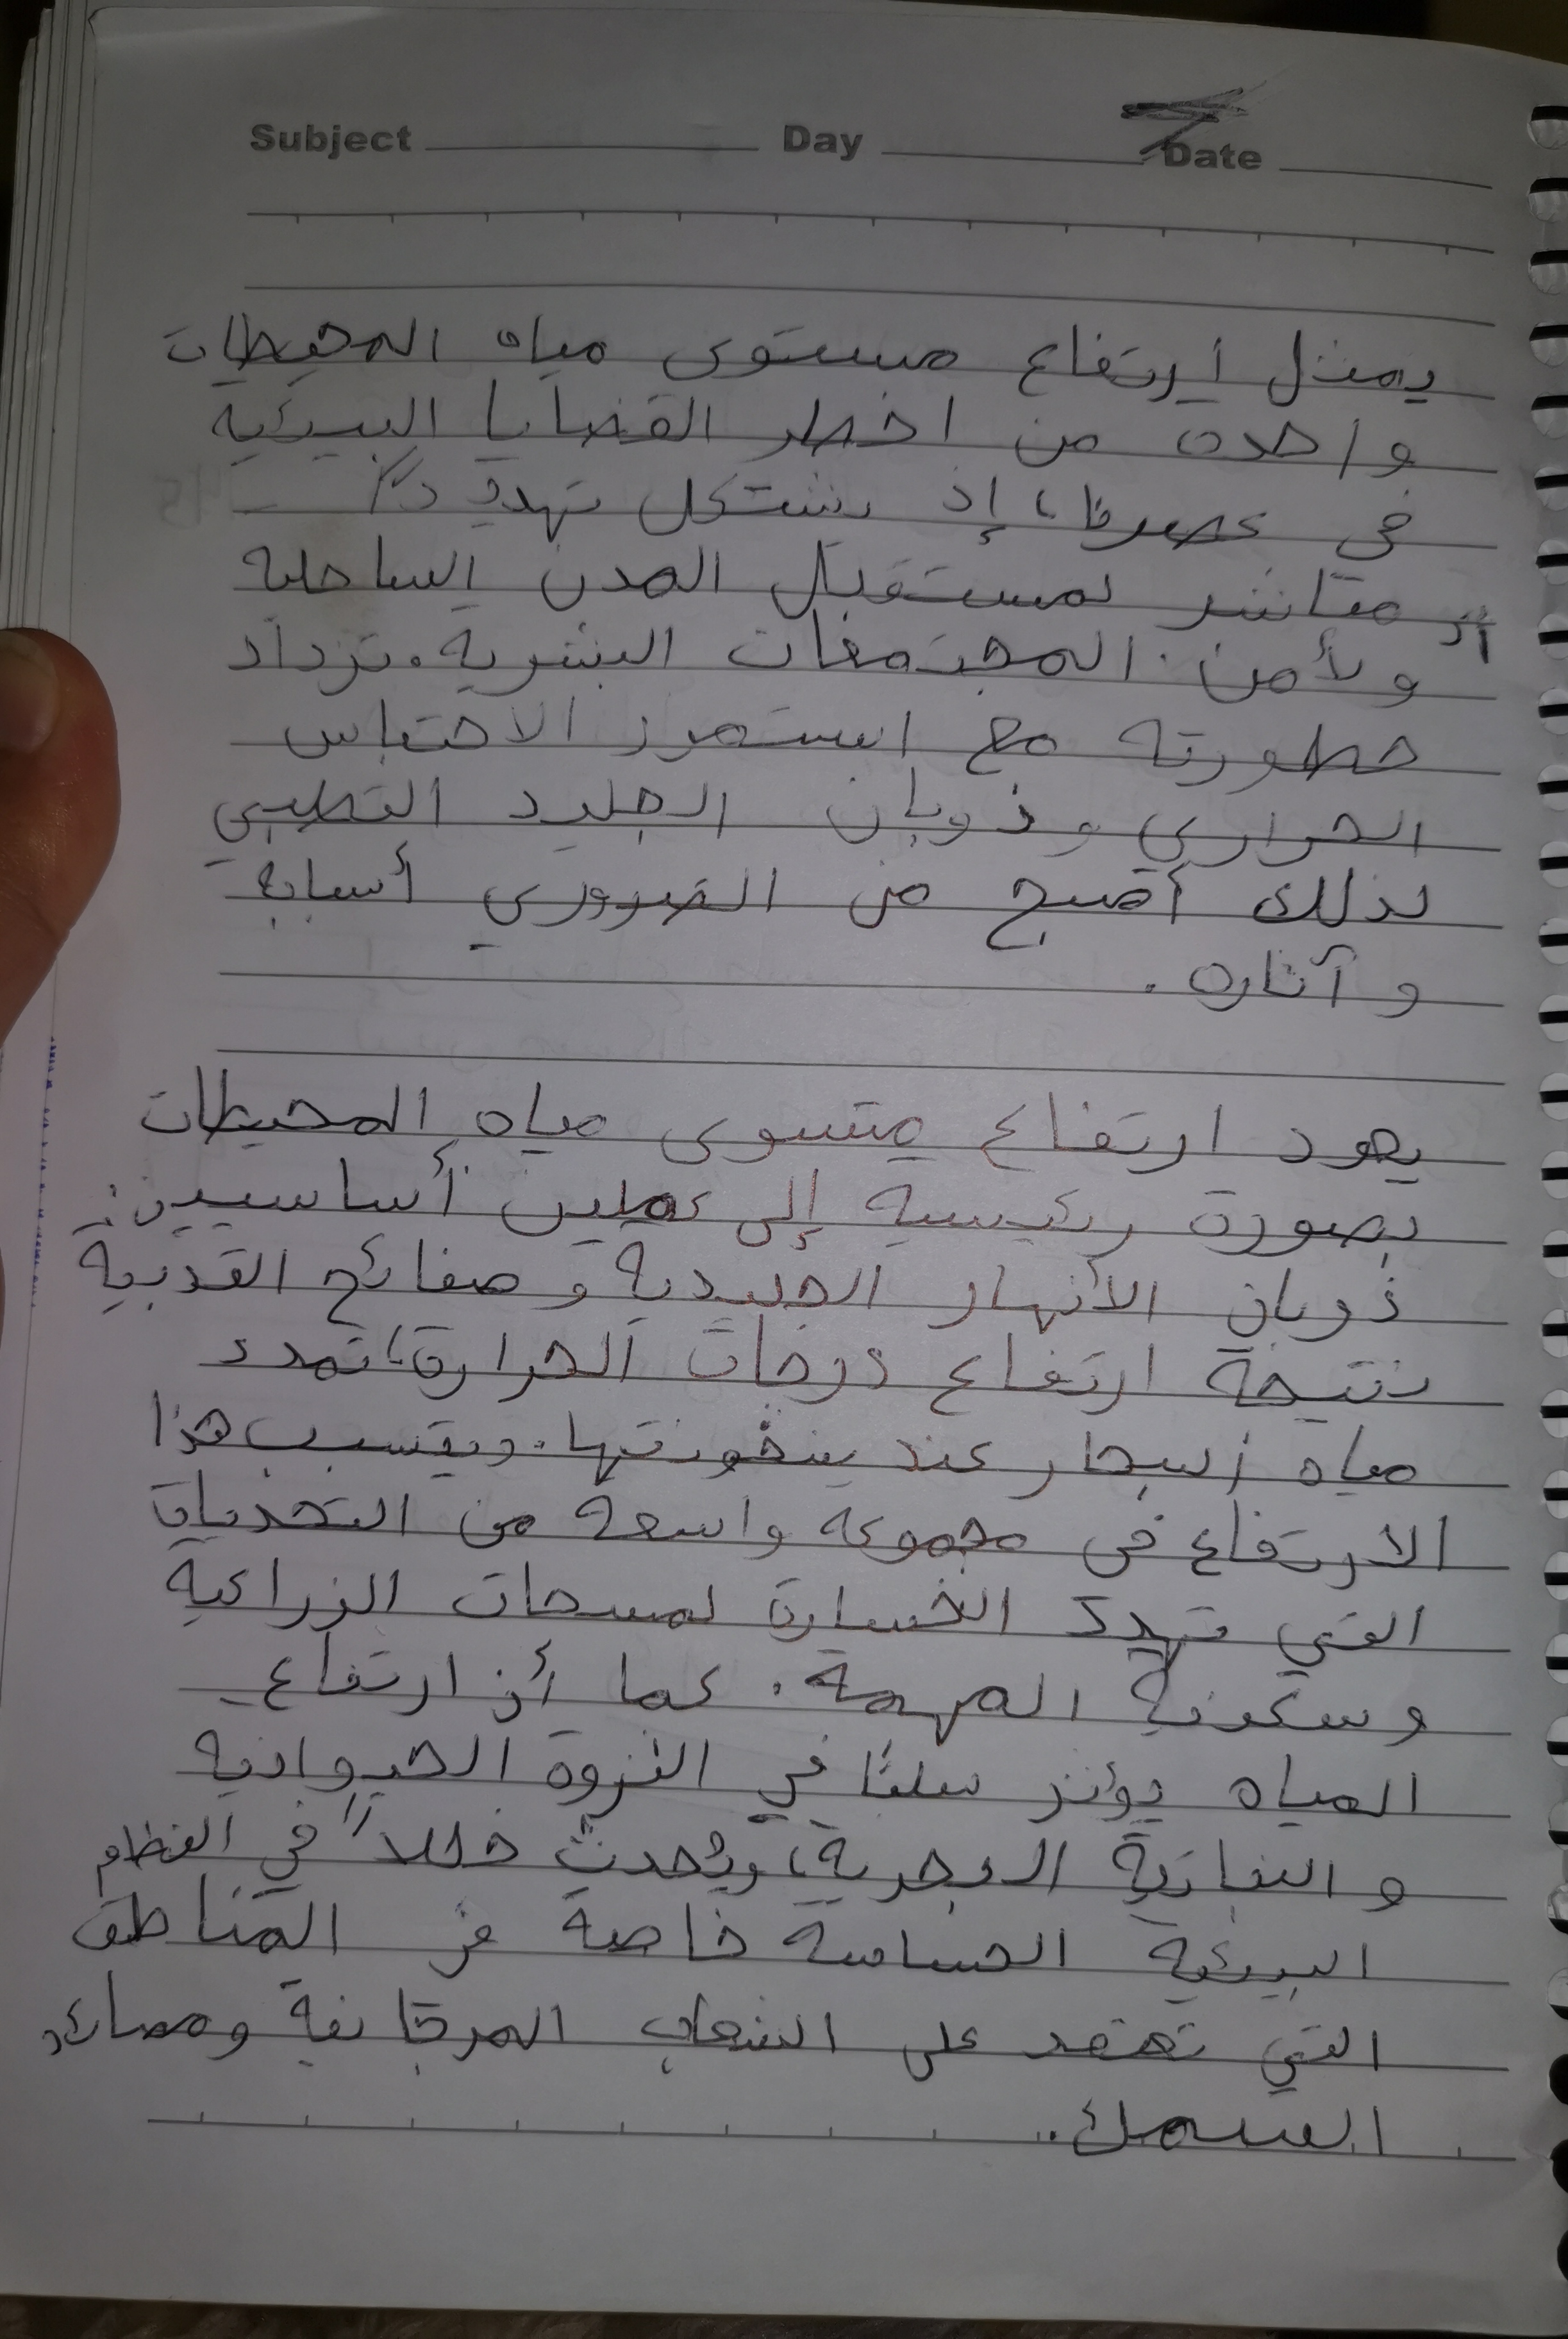 Subject Day Date
يمثل ارتفاع مستوى مياه المحيطات
واحدة من اخطر القضايا البيئية
في عصرنا، إذ يشكل تهديداً
مباشر لمستقبل المدن الساحلية
ولأمن المجتمعات البشرية. تزداد
خطورته مع استمرار الاحتباس
الحراري وذوبان الجليد القطبي
لذلك أصبح من الضروري أسبابه
وآثاره.
يعود ارتفاع متسوى مياه المحيطات
بصورة رئيسية إلى عملين أساسيين:
ذوبان الأنهار الجليدية وصفائح القدبية
نتيجة ارتفاع درجات الحرارة، تمدد
مياه البحار عند سخونتها. ويتسبب هذا
الارتفاع في مجموعه واسعه من التحديات
التي تهدد الخسارة لمسحات الزراعية
وسكونية المهمة. كما أن ارتفاع
المياه يؤثر سلبًا في الثروة الحيوانيه
والنباتية البحرية، ويُحدث خللاً في النظام
البيئية الحساسة خاصة في المناطق
التي تعتمد على الشعاب المرجانية ومصائد
السمك.